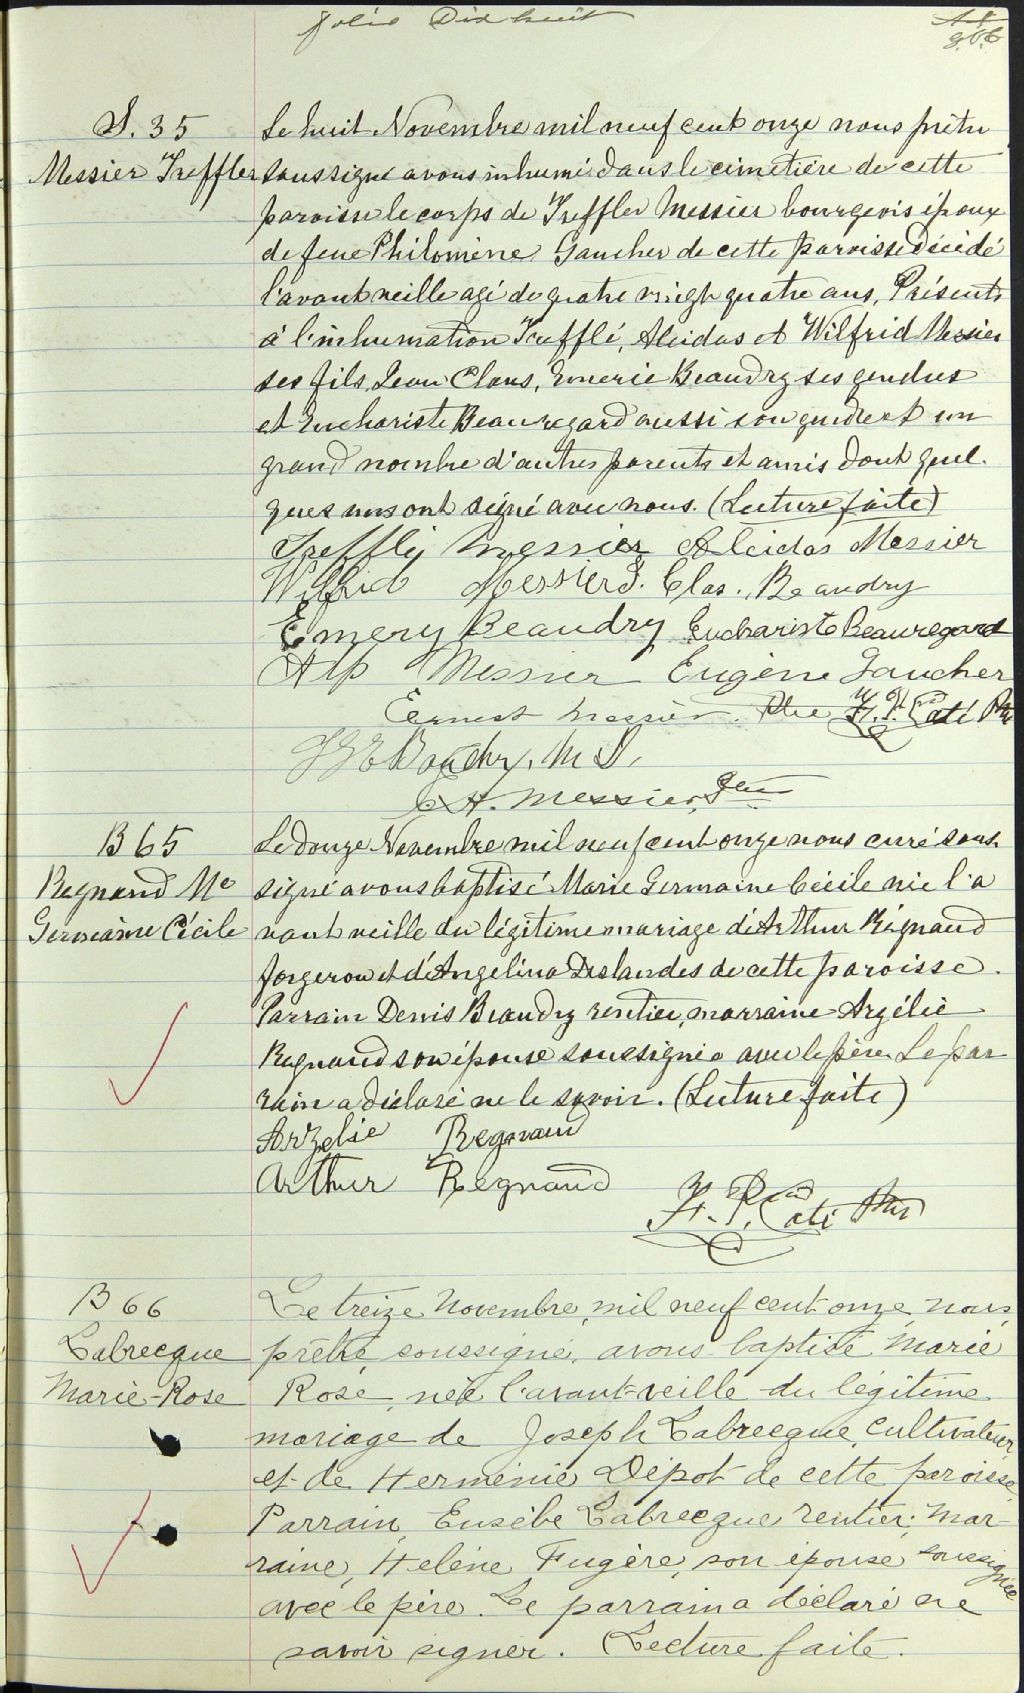 folio Dix huit
S. 35
Messier Treffler
Le huit Novembre mil neuf cent onze nous prêtre
soussigné avons inhumé dans le cimetière de cette
paroisse le corps de Treffler Messier bourgeois époux
de feue Philomène Gaucher de cette paroisse décédé
l'avant veille agé de quatre vingt quatre ans. Présents
à l'inhumation Trefflé, Alcidas et Wilfrid Messier
ses fils, Jean Claus, Emerie Beaudry ses gendres
et Euchariste Beauregard aussi son gendre et un
grand nombre d'autres parents et amis dont quel-
ques uns ont signé avec nous. (Lecture faite)
Trefflé Messier Alcidas Messier
Wilfrid Messier J. Clas. Beaudry
Emery Beaudry Euchariste Beauregard
Alp Messier Eugène Gaucher
Ernest Messier. Ptre
Beaudry, M D,
E. H. Messier,
B 65
Regnaud Me
Germaine Cécile
Le douze Novembre mil neuf cent onze nous curé sous-
signé avons baptisé Marie Germaine Cécile née l'a
vant veille du légitime mariage d'Arthur Régnaud
forgeron et d'Angélina Deslandes de cette paroisse.
Parrain Denis Beaudry rentier, marraine Arzélie
Regnaud son épouse soussignée avec le père. Le par
rain a déclaré ne le savoir. (Lecture faite)
Arzelie Regnaud
Arthur Regnaud
B 66
Labrecque
Marie-Rose
Le treize Novembre, mil neuf cent onze, nous,
prêtre, soussigné, avons baptisé Marie
Rose, née l'avant-veille du légitime
mariage de Joseph Labrecque, cultivateur,
et de Herménie Dépot de cette paroisse.
Parrain, Eusèbe Labrecque rentier; mar-
raine, Hélène Fugère, son épouse soussignée
avec le père. Le parrain a déclaré ne
savoir signer. Lecture faite.